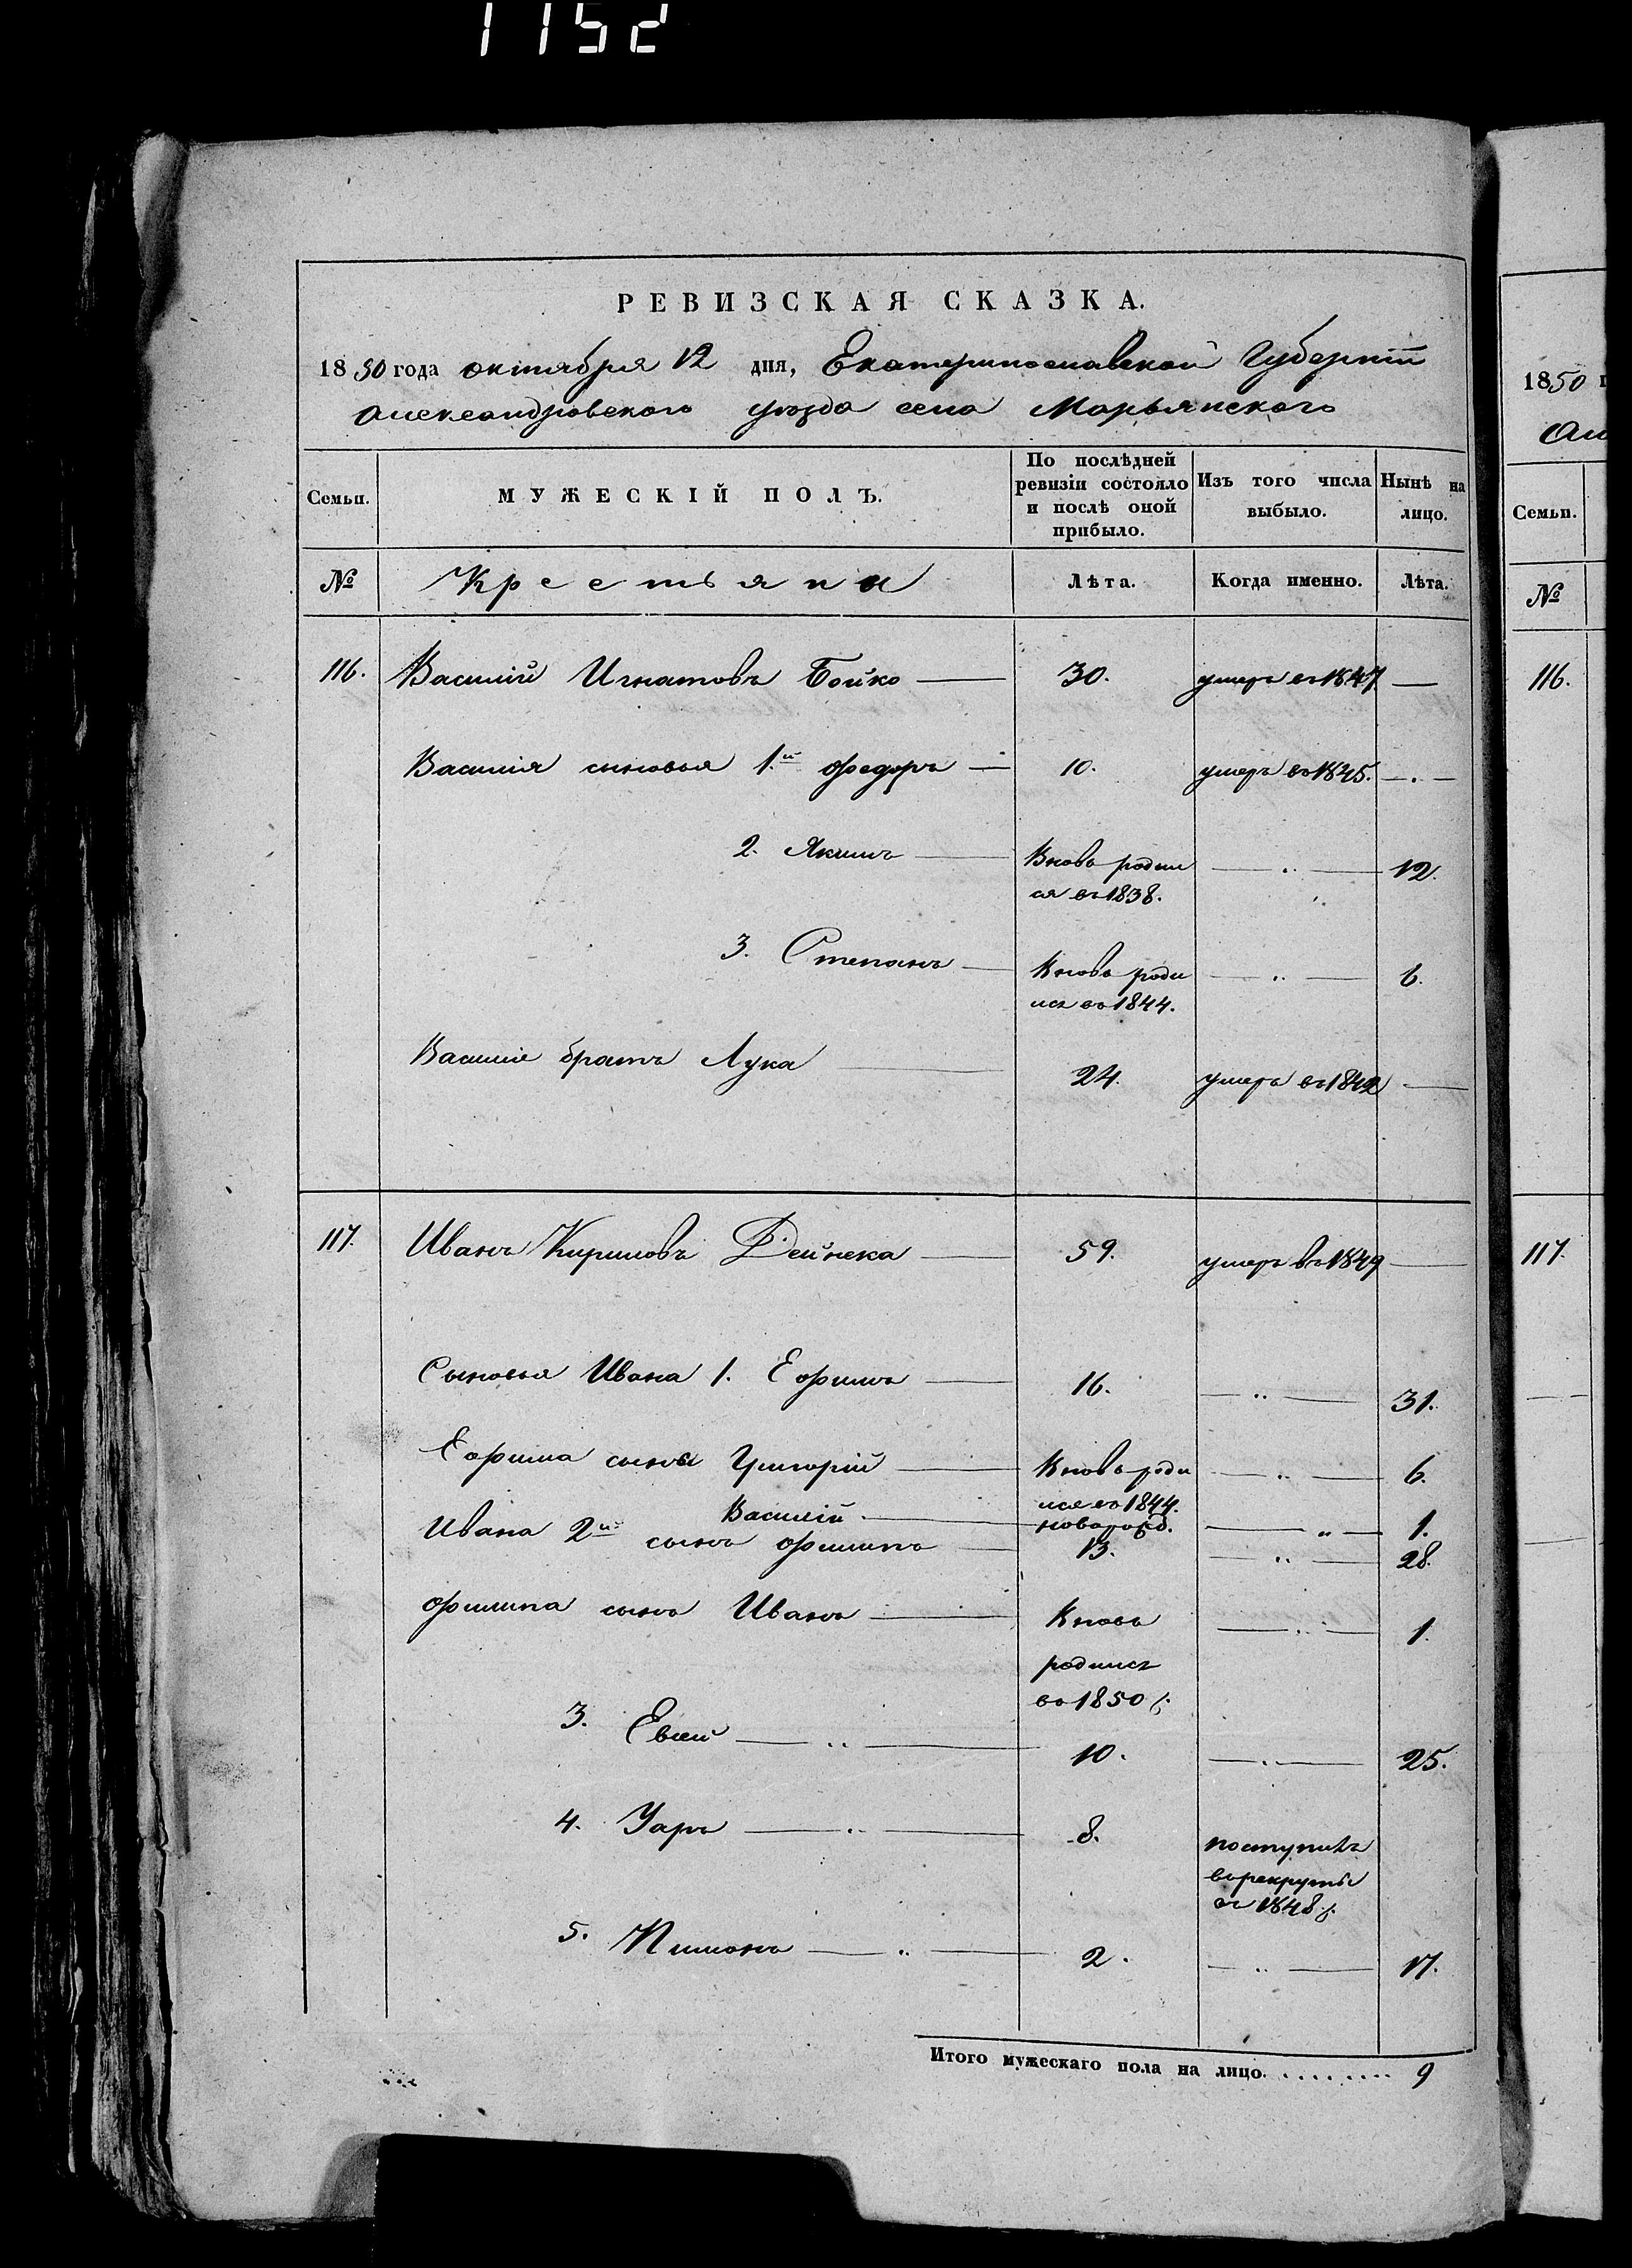 1152
РЕВИЗСКАЯ СКАЗКА.
1850 года октября 12 дня, Екатеринославской Губерніи
Александровского уѣзда села Марьянского
Семьи. МУЖЕСКІЙ ПОЛЪ. По послѣдней ревизіи состояло и послѣ оной прибыло. Изъ того числа выбыло. Нынѣ на лицо.
№ Крестьяни Лѣта. Когда именно. Лѣта.
116. Василій Игнатовъ Бойко 30. умеръ въ 1847
Василія сыновья 1.й Федоръ 10. умеръ въ 1845.
2. Якимъ Вновь родил 12.
ся въ 1838.
3. Степанъ Вновь роди 6.
лся въ 1844.
Василія братъ Лука 24. умеръ въ 1842
117. Иванъ Кириловъ Дейнека 59. умеръ въ 1849
Сыновья Ивана 1. Ефимъ 16. 31.
Ефима сыны Григорій Вновь роди 6.
лся въ 1844.
Василій новорожд. 1.
Ивана 2й сынъ Филипъ 13. 28.
Филипа сынъ Иванъ Вновь 1.
родился
въ 1850 г.
3. Евсей 10. 25.
4. Уаръ 8. поступилъ
въ рекруты
въ 1848 г.
5. Пимонъ 2. 17.
Итого мужескаго пола на лицо. 9
1850 г
Але
Семьи.
№
116.
117.